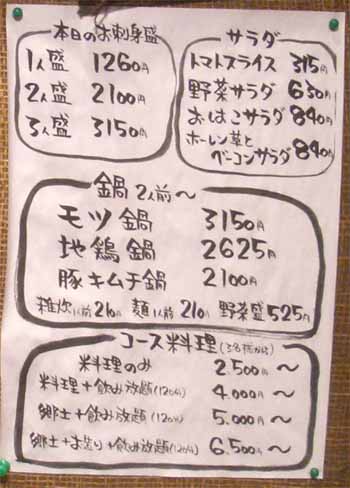 本日のお刺身盛
1人盛 1260円
2人盛 2100円
3人盛 3150円
サラダ
トマトスライス 315円
野菜サラダ 630円
おはこサラダ 840円
ホーレン草と
ベーコンサラダ 840円
鍋 2人前～
モツ鍋 3150円
地鶏鍋 2625円
豚キムチ鍋 2100円
雑炊1人前210円 麺1人前210円 野菜盛525円
コース料理(3名様から)
料理のみ 2,500円～
料理+飲み放題(120分) 4,000円～
郷土+飲み放題(120分) 5,000円～
郷土+お造り+飲み放題(120分) 6,500円～